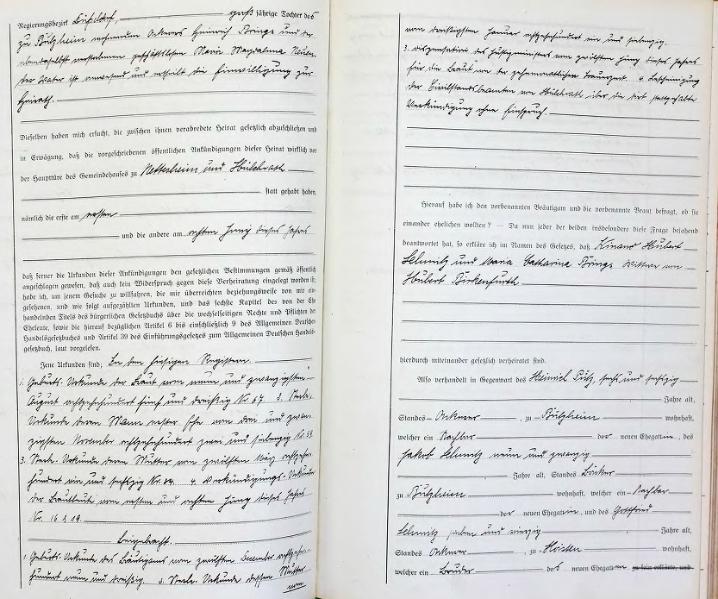 Regierungsbezirk Düsseldorf, jährige Tochter des
zu Bützheim wohnenden Ackerers Heinrich Brings und der
daselbst verstorbenen geschäftslosen Maria Magdalena
der Vater ist anwesend und ertheilt die Einwilligung zur
Heirath.
Dieselben haben mich ersucht, die zwischen ihnen verabredete Heirat gesetzlich abzuschließen und
in Erwägung, daß die vorgeschriebenen öffentlichen Ankündigungen dieser Heirat wirklich vor
der Haupttüre des Gemeindehauses zu Nettesheim und Hülchrath
statt gehabt haben,
nämlich die erste am ersten
und die andere am achten Juny dieses Jahres
daß ferner die Urkunden dieser Ankündigungen den gesetzlichen Bestimmungen gemäß öffentlich
angeschlagen gewesen, daß auch kein Widerspruch gegen diese Verheiratung eingelegt worden ist:
habe ich, um jenem Gesuche zu willfahren, die mir überreichten beziehungsweise von mir ein-
gesehenen, und wie folgt aufgezählten Urkunden, und das sechste Kapitel des von der Ehe
handelnden Titels des bürgerlichen Gesetzbuchs über die wechselseitigen Rechte und Pflichten der
Eheleute, sowie die hierauf bezüglichen Artikel 6 bis einschließlich 9 des Allgemeinen Deutschen
Handelsgesetzbuchs und Artikel 39 des Einführungsgesetzes zum Allgemeinen Deutschen Handels-
gesetzbuch, laut vorgelesen.
Jene Urkunden sind, In den hiesigen Registern.
1. Geburts-Urkunde der Braut vom neun und zwanzigsten
August achtzehnhundert fünf und dreißig Nr. 67 2. Sterbe-
Urkunde deren Mann erster Ehe vom drei und zwan-
zigsten November achtzehnhundert zwei und siebenzig Nr.
3. Sterbe-Urkunde deren Mutter vom zwölften März achtzehn-
hundert ein und sechzig Nr. 4. Verkündigungs-Urkunden
der Brautleute vom ersten und achten Juny dieses Jahres
Nr. 16 & 19.
Beigebracht.
1. Geburts-Urkunde des Bräutigams vom zwölften Dezember achtzehn-
hundert neun und dreißig. 2. Sterbe-Urkunde dessen Mutter
vom
vom dreißigsten Januar achtzehnhundert ein und siebenzig.
3. Dispensation des Justizministers vom zwölften Juny dieses Jahres
für die Braut von der zehnmonatlichen Trauerzeit. 4. Bescheinigung
der Civilstandsbeamten von Hülchrath über die dort stattgehabte
Verkündigung ohne Einspruch.
Hierauf habe ich den vorbenannten Bräutigam und die vorbenannte Braut befragt, ob sie
einander ehelichen wollten? — Da nun jeder der beiden insbesondere diese Frage bejahend
beantwortet hat, so erkläre ich im Namen des Gesetzes, daß Hubert
Schmitz und Maria Catharina Brings Wittwe von
Hubert Birkenfurth
hierdurch miteinander gesetzlich verheiratet sind.
Also verhandelt in Gegenwart des Heinrich Pütz, sechs und sechzig
Jahre alt,
Standes Ackerer, zu Bützheim wohnhaft,
welcher ein Nachbar der neuen Ehegatten, des
Jakob Schmitz neun und zwanzig
Jahre alt, Standes Bäcker
zu Bützheim wohnhaft, welcher ein Nachbar
der neuen Ehegatten, und des Gottfried
Schmitz sieben und vierzig Jahre alt,
Standes Ackerer, zu wohnhaft,
welcher ein Bruder des neuen Ehegatten